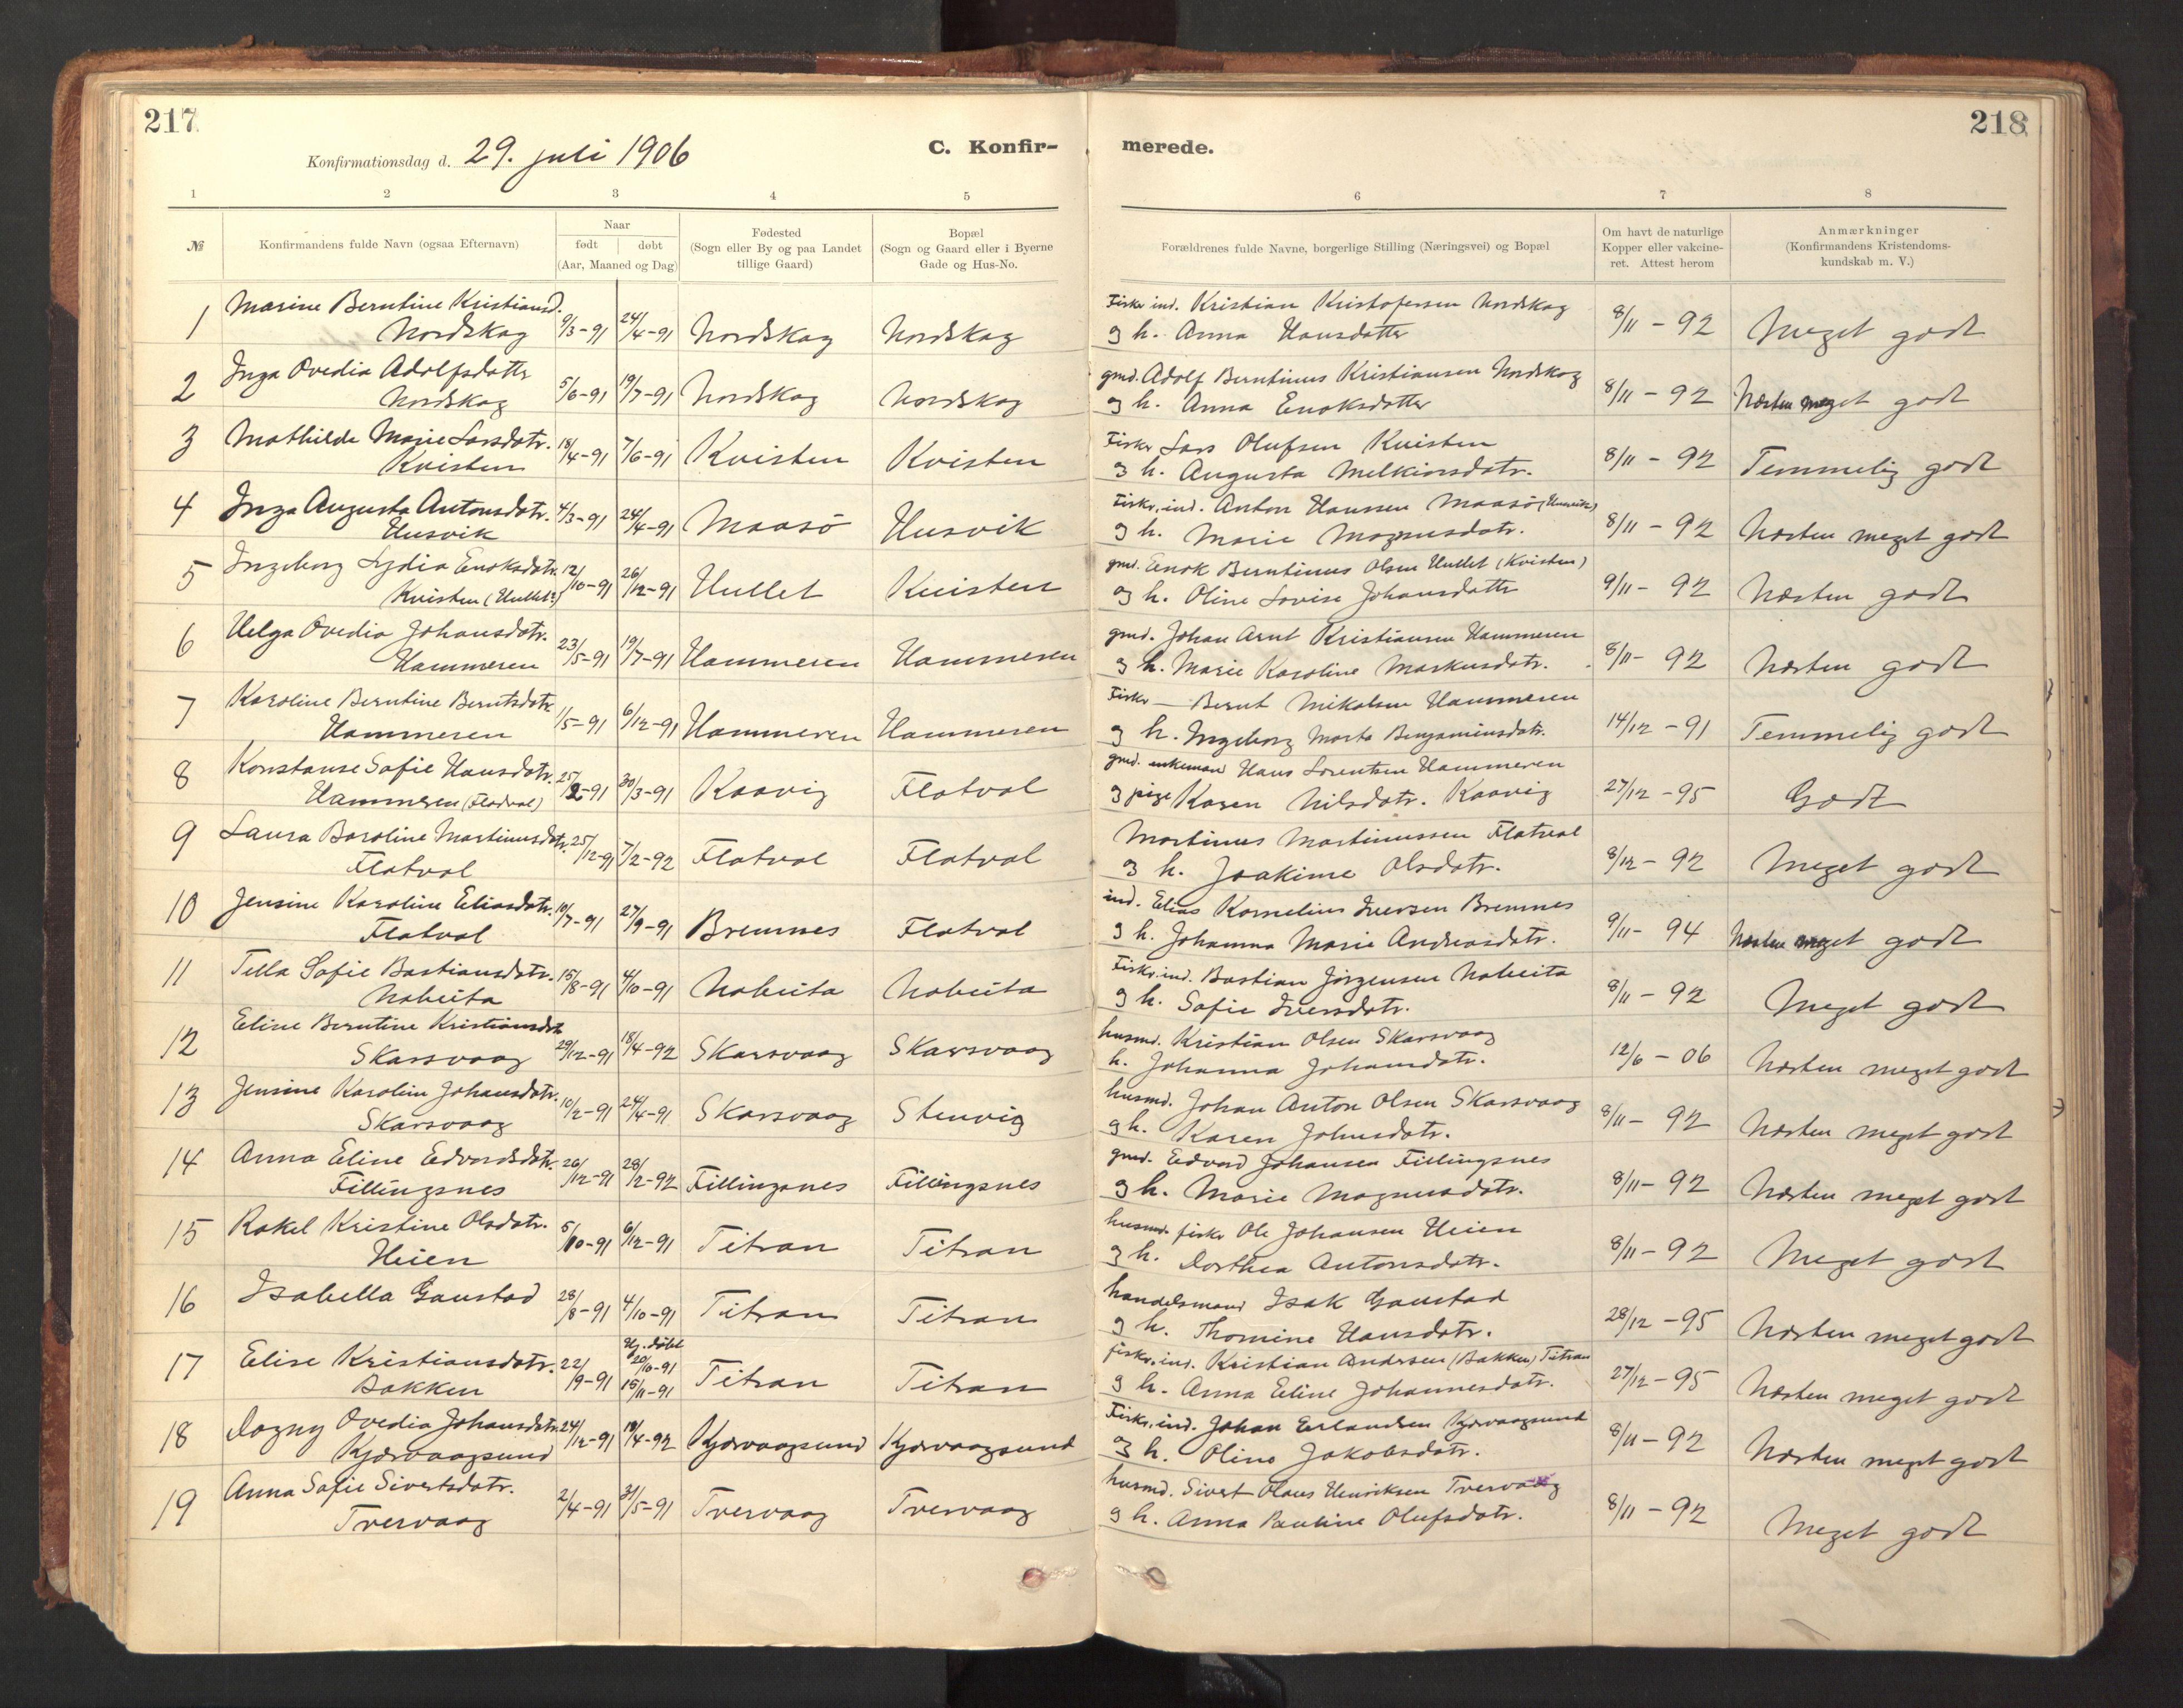 217
218
Konfirmationsdag d. 29. juli 1906
C. Konfir-
merede.
1 2 3 4 5 6 7 8
№
Konfirmandens fulde Navn (ogsaa Efternavn)
Naar
født
døbt
(Aar, Maaned og Dag)
Fødested
(Sogn eller By og paa Landet
tillige Gaard)
Bopæl
(Sogn og Gaard eller i Byerne
Gade og Hus-No.
Forældrenes fulde Navne, borgerlige Stilling (Næringsvei) og Bopæl
Om havt de naturlige
Kopper eller vakcine-
ret. Attest herom
Anmærkninger
(Konfirmandens Kristendoms-
kundskab m. V.)
1 Marine Berntine Kristiansd.
Nordskag 9/3-91 24/4-91 Nordskag Nordskag
Fisker ind. Kristian Kristofersen Nordskag
og h. Anna Hansdatter 8/11-92 Meget godt
2 Inga Ovedia Adolfsdatter
Nordskag 5/6-91 19/7-91 Nordskag Nordskag
gmd. Adolf Berntinus Kristiansen Nordskag
og h. Anna Enoksdatter 8/11-92 Næsten meget godt
3 Mathilde Marie Larsdatr.
Kvisten 18/4-91 7/6-91 Kvisten Kvisten
Fisker Lars Olufsen Kvisten
og h. Augusta Melkiorsdatr. 8/11-92 Temmelig godt
4 Inga Augusta Antonsdatr.
Husvik 4/3-91 24/4-91 Maasö Husvik
Fisker, ind. Anton Hansen Maasö (Husvik)
og h. Marie Magnusdatr. 8/11-92 Næsten meget godt
5 Ingeborg Lydia Enoksdatr.
Kvisten (Hullet?) 12/10-91 26/12-91 Hullet Kvisten
gmd. Enok Berntinus Olsen Hullet (Kvisten)
og h. Oline Lovise Johansdatter 9/11-92 Næsten godt
6 Helga Ovedia Johansdatr.
Hammeren 23/5-91 19/7-91 Hammeren Hammeren
gmd. Johan Arnt Kristiansen Hammeren
og h. Marie Karoline Markusdatr. 8/11-92 Næsten godt
7 Karoline Berntine Berntsdatr
Hammeren 1/5-91 6/12-91 Hammeren Hammeren
Fisker — Bernt Mikalsen Hammeren
og h. Ingeborg Marta Benjaminsdatr. 14/12-91 Temmelig godt
8 Konstanse Sofie Hansdatr.
Hammeren (Flatval) 25/2-91 30/3-91 Kaavig Flatval
gmd. enkemand Hans Lorentsen Hammeren
og pige Karen Nilsdatr. Kaavig 27/12-95 Godt
9 Laura Baroline Martinusdatr.
Flatval 25/12-91 7/2-92 Flatval Flatval
Martinus Martinussen Flatval
og h. Joakime Olsdatr. 8/12-92 Meget godt
10 Jensine Karoline Eliasdatr.
Flatval 19/7-91 27/9-91 Bremnes Flatval
ind. Elias Kornelius Iversen Bremnes
og h. Johanna Marie Andreasdatr. 9/11-94 Næsten meget godt
11 Tella Sofie Bastiansdatr.
Nabeita 15/8-91 4/10-91 Nabeita Nabeita
Fisker. ind. Bastian Jörgensen Nabeita
og h. Sofie Iversdatr. 8/11-92 Meget godt
12 Eline Berntine Kristiansdatr
Skarsvaag 29/12-91 18/4-92 Skarsvaag Skarsvaag
husmd. Kristian Olsen Skarsvaag
h. Johanna Johansdatr. 12/6-06 Næsten meget godt
13 Jensine Karoline Johansdatr.
Skarsvaag 10/2-91 24/4-91 Skarsvaag Stenvig
husmd. Johan Anton Olsen Skarsvaag
og h. Karen Johnsdatr. 8/11-92 Næsten meget godt
14 Anna Eline Edvardsdatr.
Fillingsnes 26/12-91 28/2-92 Fillingsnes Fillingsnes
gmd. Edvard Johansen Fillingsnes
og h. Marie Magnusdatr. 8/11-92 Næsten meget godt
15 Rakel Kristine Olsdatr.
Heien 5/10-91 6/12-91 Titran Titran
husmd. fisker Ole Johansen Heien
og h. Dorthea Antonsdatr. 8/11-92 Meget godt
16 Isabella Gaustad 28/8-91 4/10-91 Titran Titran
handelsmand Isak Gaustad
og h. Thomine Hansdatr. 28/12-95 Næsten meget godt
17 Elise Kristiansdatr.
Bakken 22/9-91 Hj. döbt
20/10-91
15/11-91 Titran Titran
fisker, ind. Kristian Andersen (Bakken) Titran
og h. Anna Eline Johannesdatr. 27/12-95 Næsten meget godt
18 Dagny Ovedia Johansdatr.
Kjervaagsund 24/12-91 18/4-92 Kjervaagsund Kjervaagsund
Fisker, ind. Johan Erlandsen Kjervaagsund
og h. Oline Jakobsdatr. 8/11-92 Næsten meget godt
19 Anna Sofie Sivertsdatr.
Tvervaag 2/4-91 31/5-91 Tvervaag Tvervaag
husmd. Sivert Olaus Henriksen Tvervaag
og h. Anna Pauline Olufsdatr. 8/11-92 Meget godt